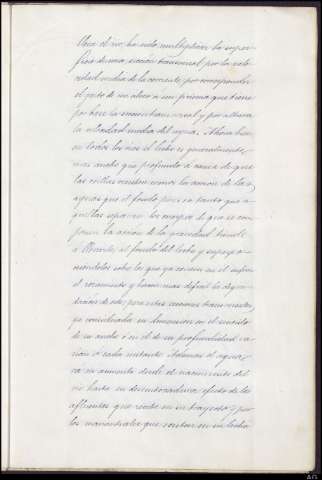 Para el rio, ha sido, multiplicar la super-
ficie de una sección transversal por la velo-
cidad media de la corriente, por corresponder
el gasto de un alveo a un prisma que tiene
por base la sección transversal y por altura
la velocidad media del agua. Ahora bien,
en todos los rios el lecho es generalmente,
mas ancho que profundo a causa de que
las orillas resisten menos la acción de las
aguas que el fondo, pues en tanto que a
quellas separan los cuerpos de que se com-
ponen la acción de la gravedad tiende
a llevarlos al fondo del lecho y superpo-
niéndolos sobre los que ya existen en el
el rozamiento y hacen mas dificil la degra-
dación de este; pero estas secciones transversales,
ya considerada su dimension en el sentido
de su ancho ó en el de su profundidad va-
rian á cada instante. Ademas el agua
va en aumento desde el nacimiento del
rio hasta su desembocadura, efecto de los
afluentes que recibe en su trayecto y por
los manantiales que existen en su lecho